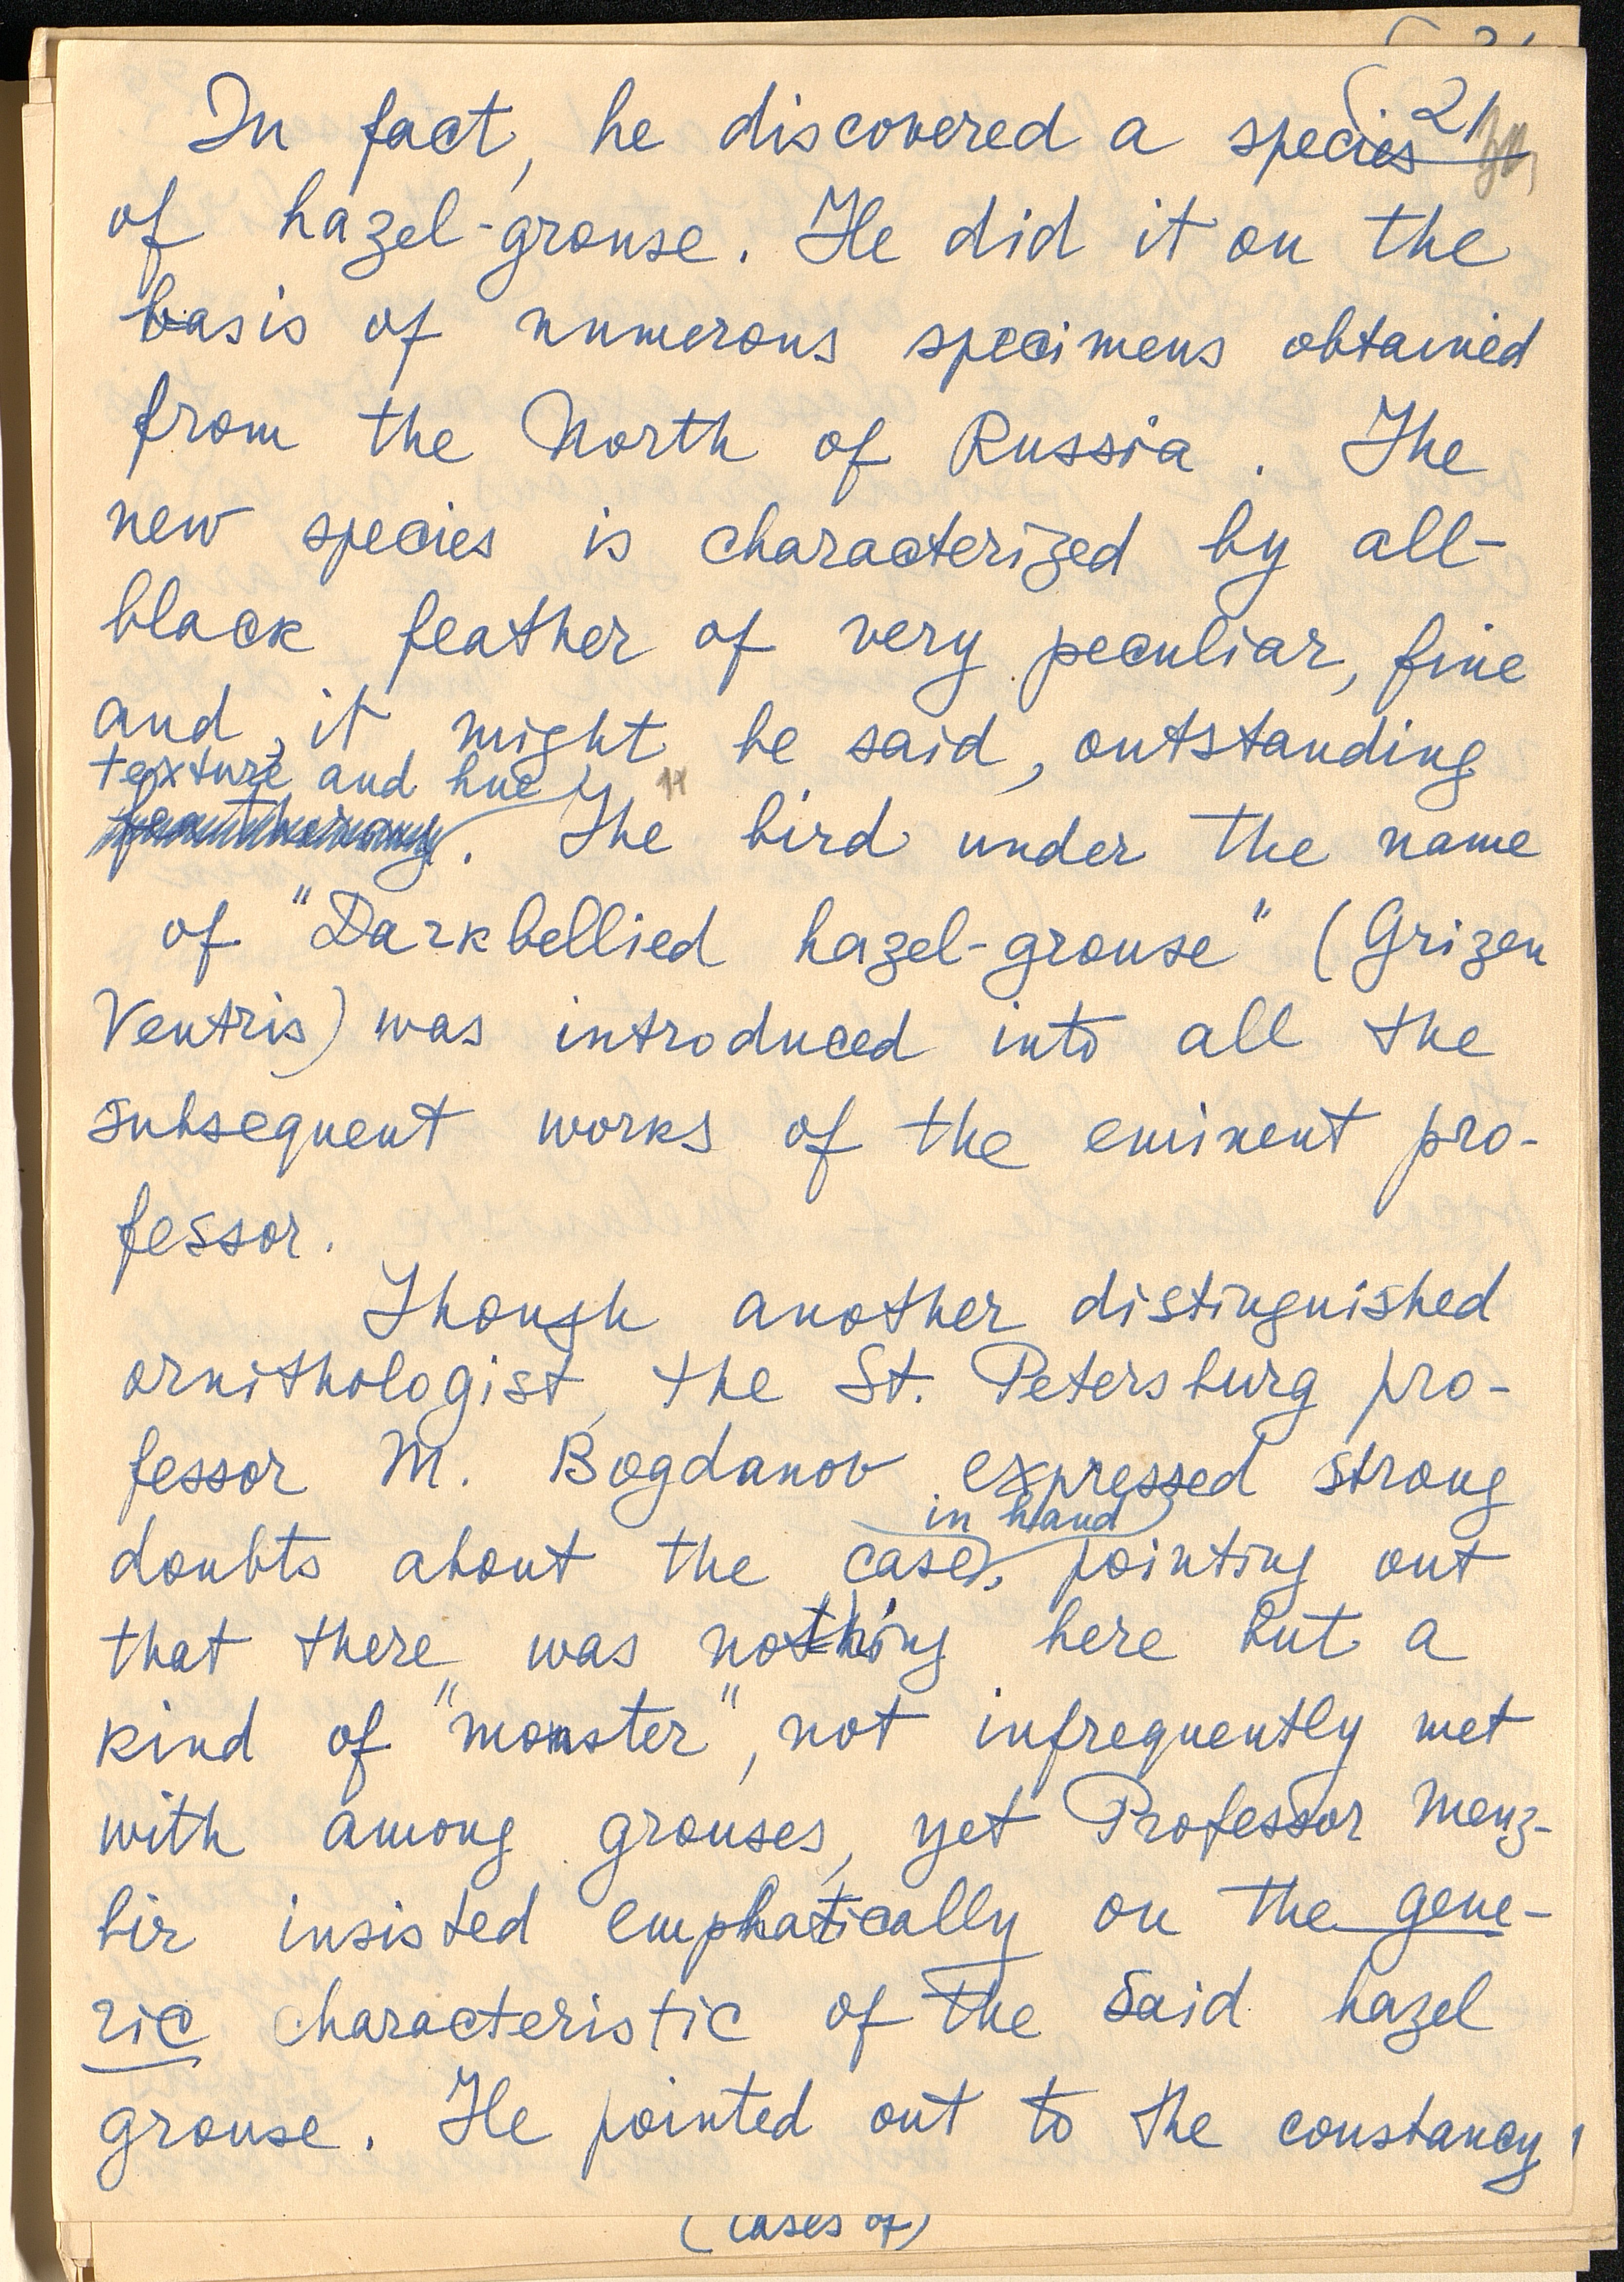 21
In fact, he discovered a species
of hazel-grouse. He did it on the
basis of numerous specimens obtained
from the North of Russia. The
new species is characterized by all-
black feather of very peculiar, fine
and, it might be said, outstanding
texture and hue
. The bird under the name
of "Darkbellied hazel-grouse" (Grizen
Ventris) was introduced into all the
subsequent works of the eminent pro-
fessor.
Though another distinguished
ornithologist, the St. Petersburg pro-
fessor M. Bogdanov expressed strong
in hand
doubts about the case, pointing out
that there was nothing here but a
kind of "monster", not infrequently met
with among grouses, yet Professor Menz-
bir insisted emphatically on the gene-
ric characteristic of the said hazel
grouse. He pointed out to the constancy
(cases of)